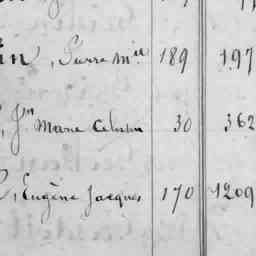 in, Pierre M.el 189 197
, Jn Marie 30 362
, Eugène Jacques 170 1209